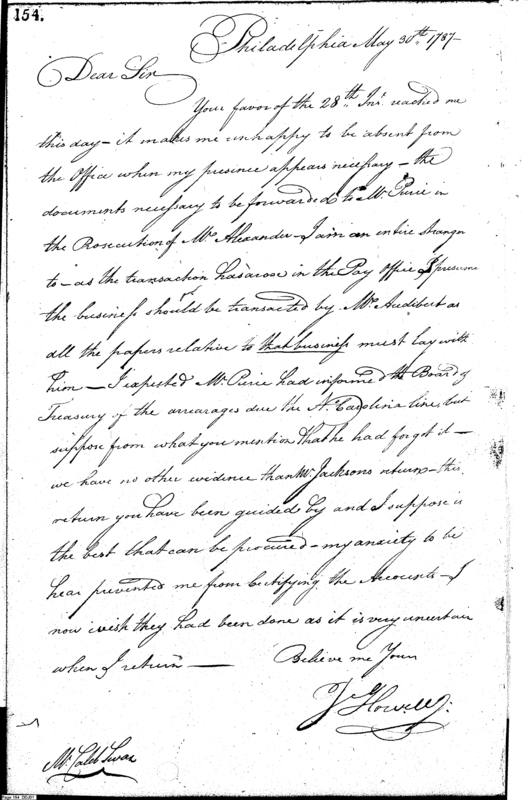 154.
Philadelphia May 30th. 1787
Dear Sir
Your favor of the 28th. Inst. reached me
this day – it makes me unhappy to be absent from
the Office when my presence appears necessary – the
documents necessary to be forwarded to Mr. Pierce in
the Rosecution of Mr. Alexander – I am an entire stranger
to – as the transaction has arose in the Pay Office I presume
the business should be transacted by Mr. Audibert as
all the papers relative to that business must lay with
him – I expected Mr. Pierce had informed the Board of
Treasury of the arrearages due the No. Carolina line, but
suppose from what you mention that he had forgot it –
we have no other evidence than Mr. Jacksons return – this
return you have been guided by and I suppose is
the best that can be procured – my anxiety to be
hear prevented me from certifying the Accounts – I
now wish they had been done as it is very uncertain
when I return –
Believe me Your
Jos Howell Jr.
Mr. Caleb Swan